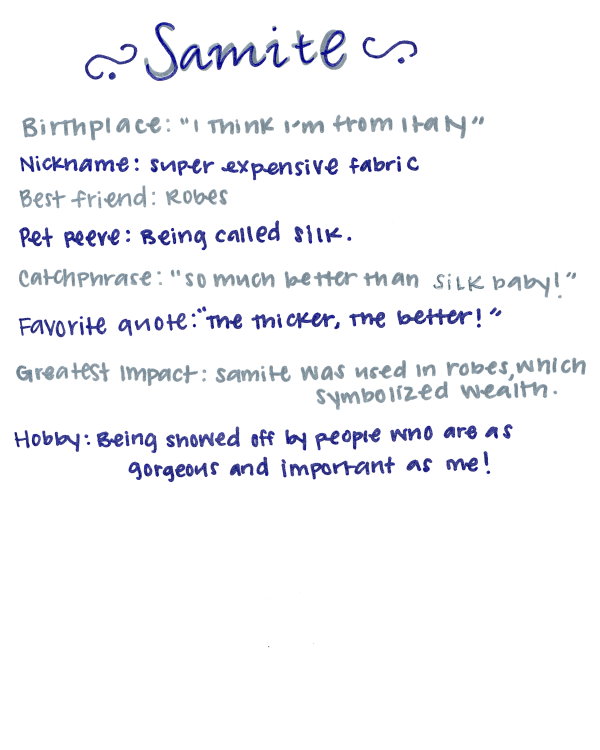 Samite
Birthplace: "I think I'm from Italy"
Nickname: super expensive fabric
Best friend: Robes
Pet peeve: Being called silk.
Catchphrase: "so much better than silk baby!"
Favorite quote: "The thicker, the better!"
Greatest Impact: samite was used in robes, which
symbolized wealth.
Hobby: Being showed off by people who are as
gorgeous and important as me!